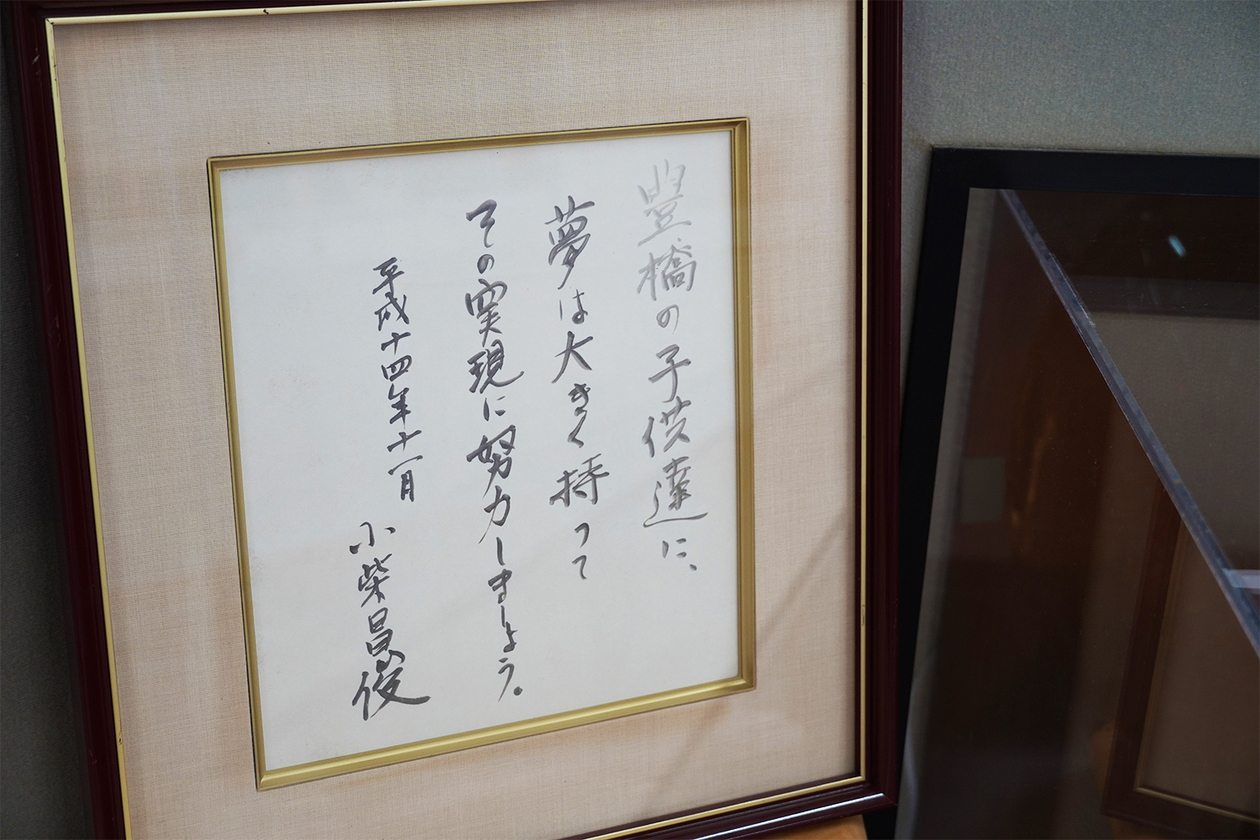 豊橋の子供達に、
夢は大きく持って
その実現に努力しましょう。
平成十四年十一月
小柴昌俊